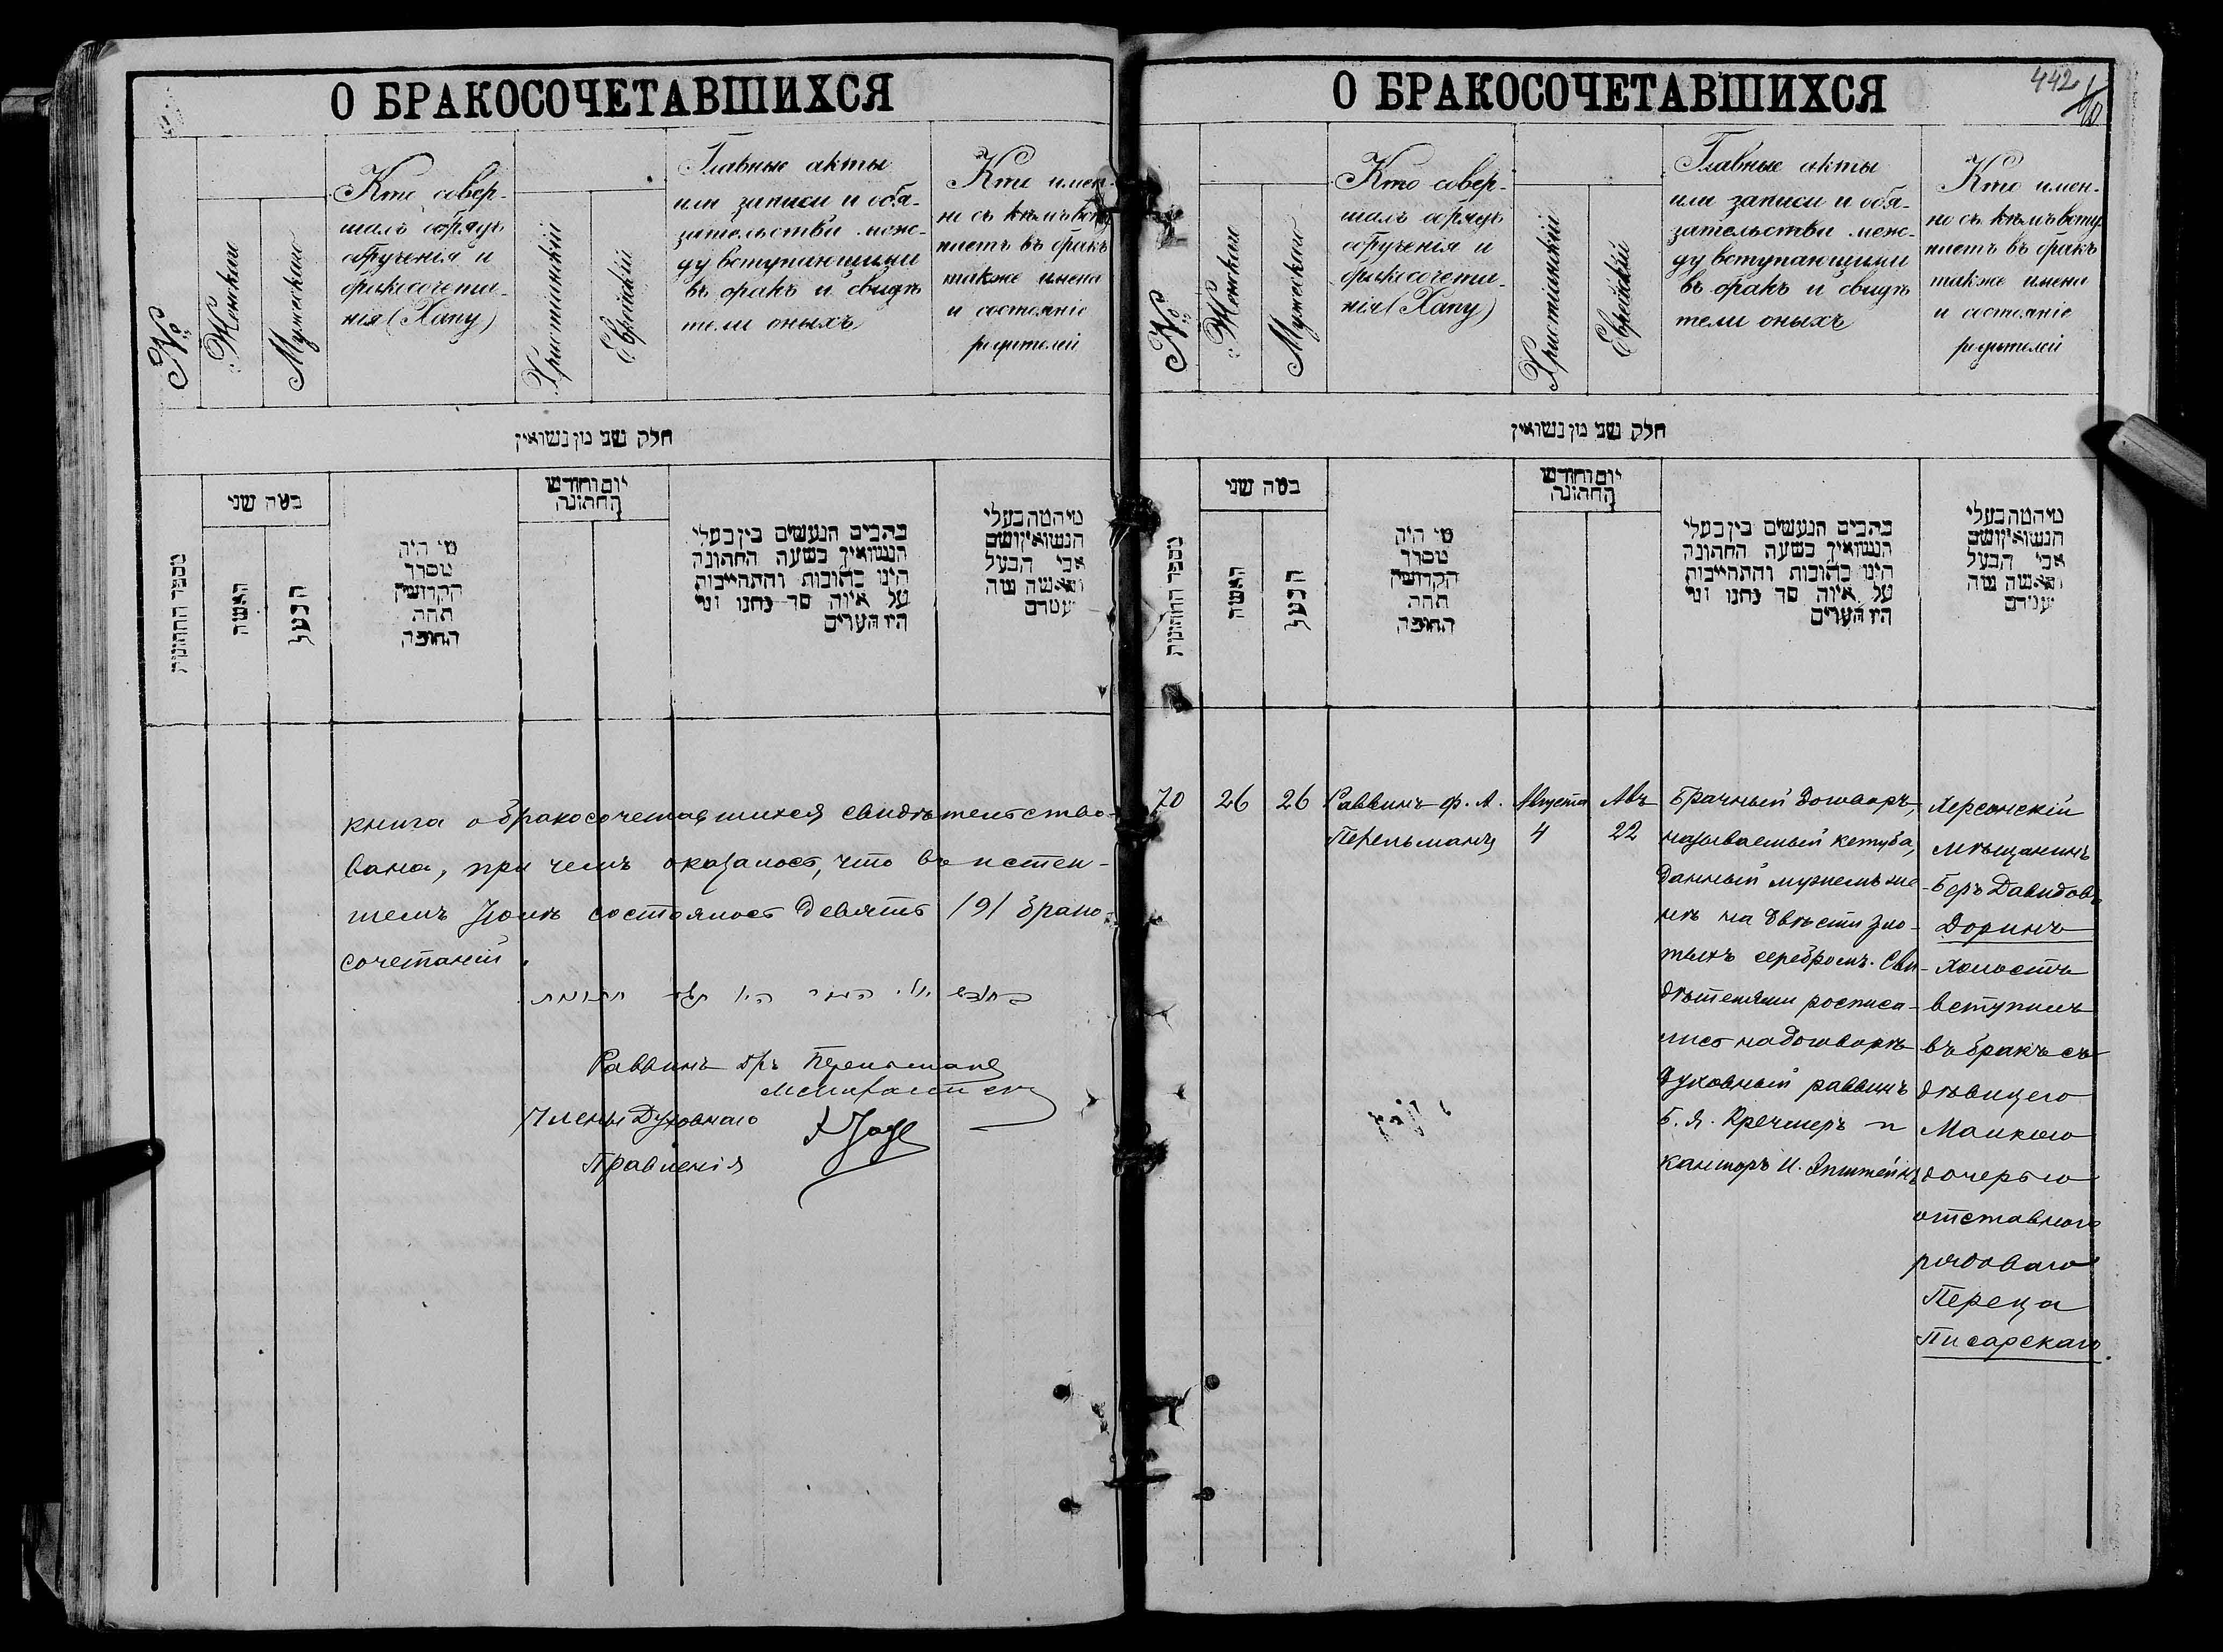 О БРАКОСОЧЕТАВШИХСЯ
№
Женскаго
Мужескаго
Кто совер-
шалъ обрядъ
обрученія и
бракосочета-
нія (Хапу)
Христіанскій
Еврейскій
Главные акты
или записи и обя-
зательства меж-
ду вступающими
въ бракъ и свидѣ
тели оныхъ
Кто имен-
но съ кѣмъ всту
паетъ въ бракъ
также имена
и состояніе
родителей
חלק שני מן נשואין
מספר החתונות
כמה שני
האשה
הבעל
מי היה
מסדר
הקדושין
תחת
החופה
יום וחודש
החתונה
כתבים הנעשים בין בעלי
הנשואין בשעה החתונה
היינו כתובות והתחייבות
על איזה סך נתנו ומי
היו העדים
מי המה בעלי
הנשואין ושם
אבי הבעל
והאשה ומה
מעמדם
книга о бракосочетавшихся свидѣтельство-
вана, при чемъ оказалось, что въ истек-
шемъ Іюлѣ состоялось девять /9/ брако-
сочетаній.
Раввинъ дръ Перельманъ
Члены Духовнаго
Правленія
О БРАКОСОЧЕТАВШИХСЯ
442
№
Женскаго
Мужескаго
Кто совер-
шалъ обрядъ
обрученія и
бракосочета-
нія (Хапу)
Христіанскій
Еврейскій
Главные акты
или записи и обя-
зательства меж-
ду вступающими
въ бракъ и свидѣ
тели оныхъ
Кто имен-
но съ кѣмъ всту
паетъ въ бракъ
также имена
и состояніе
родителей
חלק שני מן נשואין
מספר החתונות
כמה שני
האשה
הבעל
מי היה
מסדר
הקדושין
תחת
החופה
יום וחודש
החתונה
כתבים הנעשים בין בעלי
הנשואין בשעה החתונה
היינו כתובות והתחייבות
על איזה סך נתנו ומי
היו העדים
מי המה בעלי
הנשואין ושם
אבי הבעל
והאשה ומה
מעמדם
70
26
26
Раввинъ Ф. А.
Перельманъ
Августа
4
Авъ
22
Брачный договоръ,
называемый кетуба,
данный мужемъ же-
нѣ на двѣсти зло-
тыхъ серебромъ. Сви-
дѣтелями росписа-
лись на договорѣ
духовный раввинъ
Б. Я. Кречмеръ и
канторъ И. Эпштейнъ
Херсонскій
мѣщанинъ
Беръ Давидовъ
Доринъ
холостъ
вступилъ
въ бракъ съ
дѣвицею
Малкою
дочерью
отставного
рядоваго
Переца
Писарскаго.